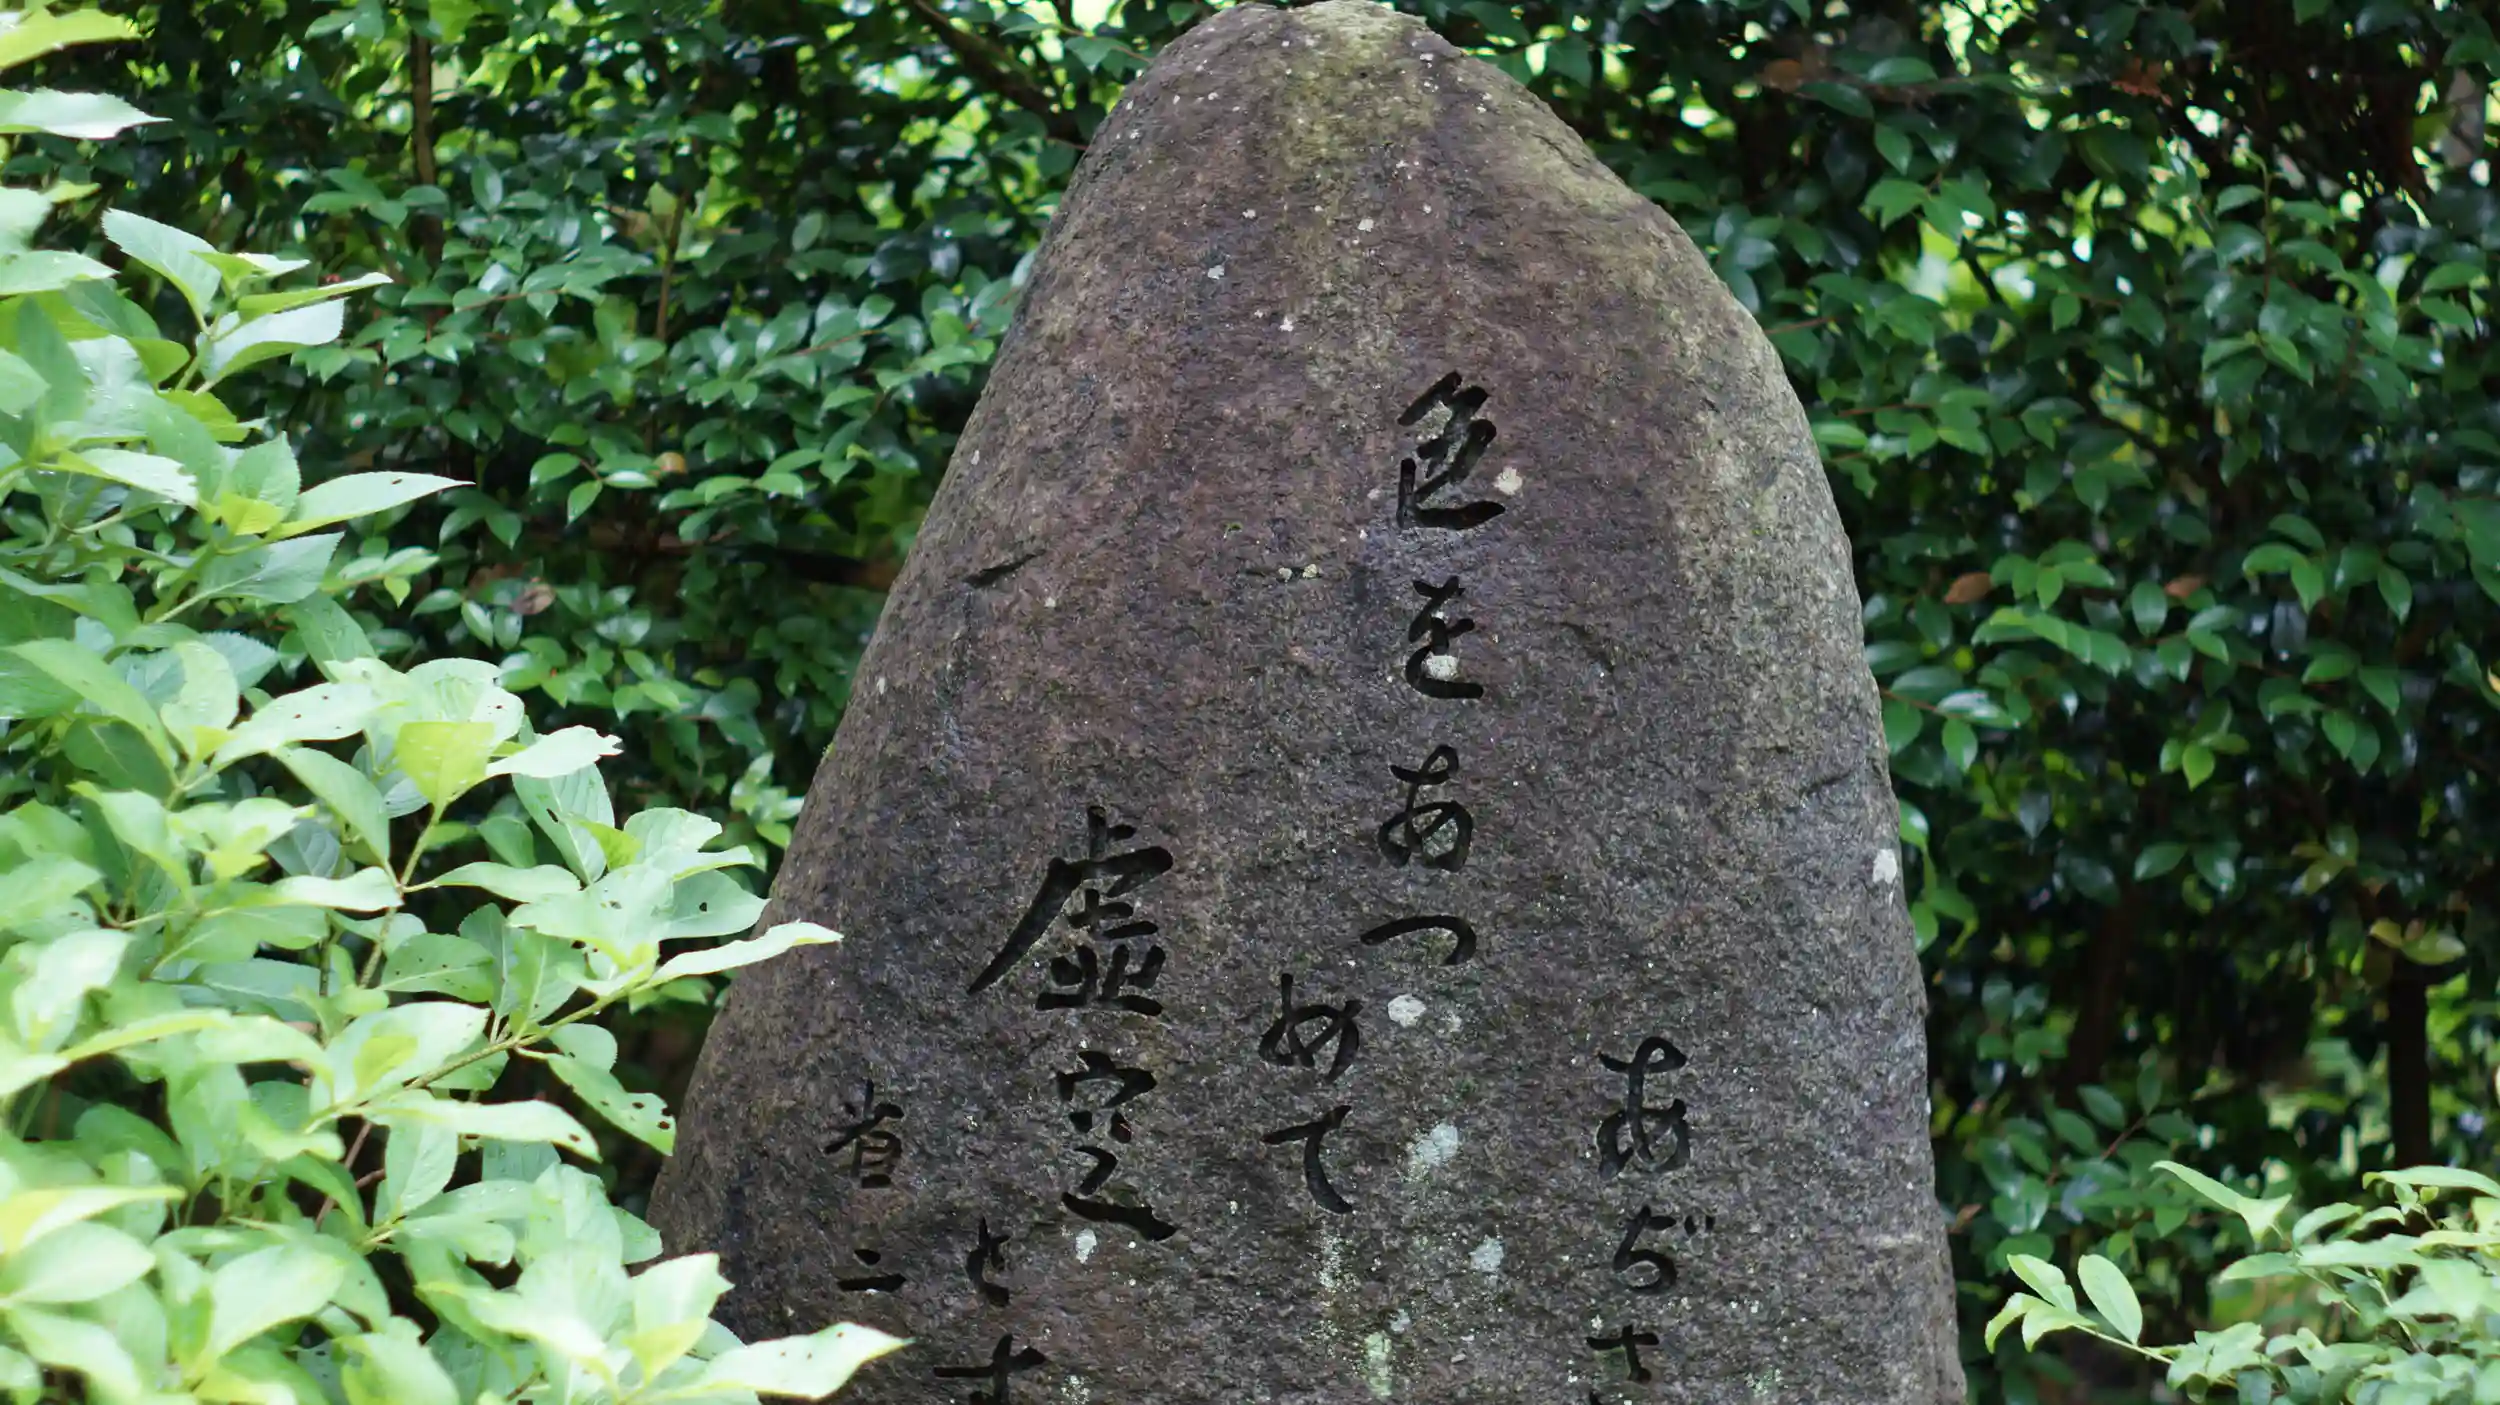 あぢさ
色をあつめて
虚空とす
省二